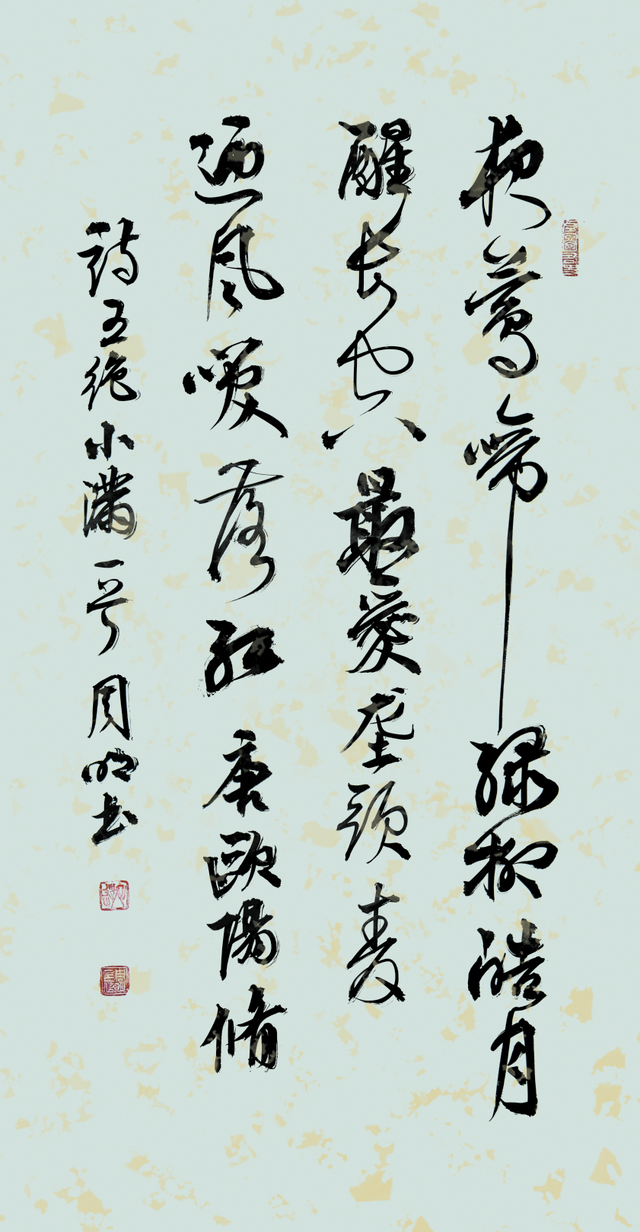 夜莺啼绿柳皓月
醒长空最爱垄头麦
迎风咲落红 唐欧陽脩
诗五绝小满一首 周明书